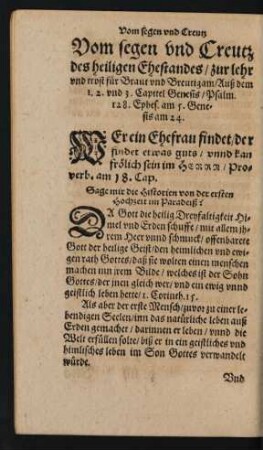 Vom segen vnd Creutz
Vom segen vnd Creutz
des heiligen Ehestandes/ zur lehr
vnd trost für Braut vnd Breutgam/ Auß dem
1. 2. vnd 3. Capitel Genesis/ Psalm.
128. Ephes. am 5. Gene-
sis am 24.
WEr ein Ehefrau findet/ der
findet etwas guts/ vnnd kan
frölich sein im HERRN/ Pro-
verb. am 18. Cap.
Sage mir die Historien von der ersten
Hochzeit im Paradeiß?
DA Gott die heilig Dreyfaltigkeit Hi-
mel vnd Erden schuffe/ mit allem ih-
rem Heer vnnd schmuck/ offenbarete
Gott der heilige Geist den heimlichen vnd ewi-
gen rath Gottes/ daß sie wolten einen menschen
machen inn irem Bilde/ welches ist der Sohn
Gottes/ der jnen gleich wer/ vnd ein ewig vnnd
geistlich leben hette/ 1. Corinth. 15.
Als aber der erste Mensch/ zuvor zu einer le-
bendigen Seelen/ inn das natürliche leben auß
Erden gemachet/ darinnen er leben/ vnnd die
Welt erfüllen solte/ biß er in ein geistliches vnd
himlisches leben im Son Gottes verwandelt
würde.
Vnd